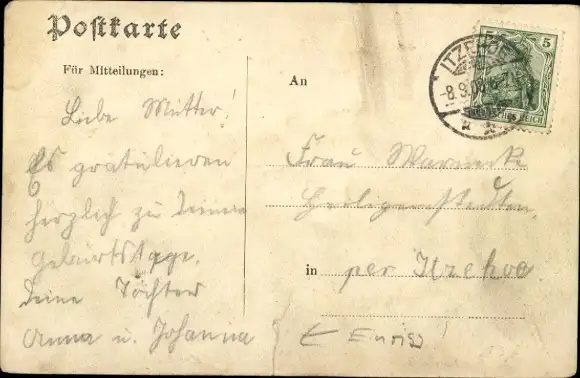 Postkarte
Für Mitteilungen:
Liebe Mutter!
Es gratulieren
herzlich zu Deinem
Geburtstage,
Deine Töchter
Anna u. Johanna
An
Frau Warneke
Heiligenstedten
in per Itzehoe
ITZEHOE
-8.9.06 6-7
5 5
DEUTSCHES REICH